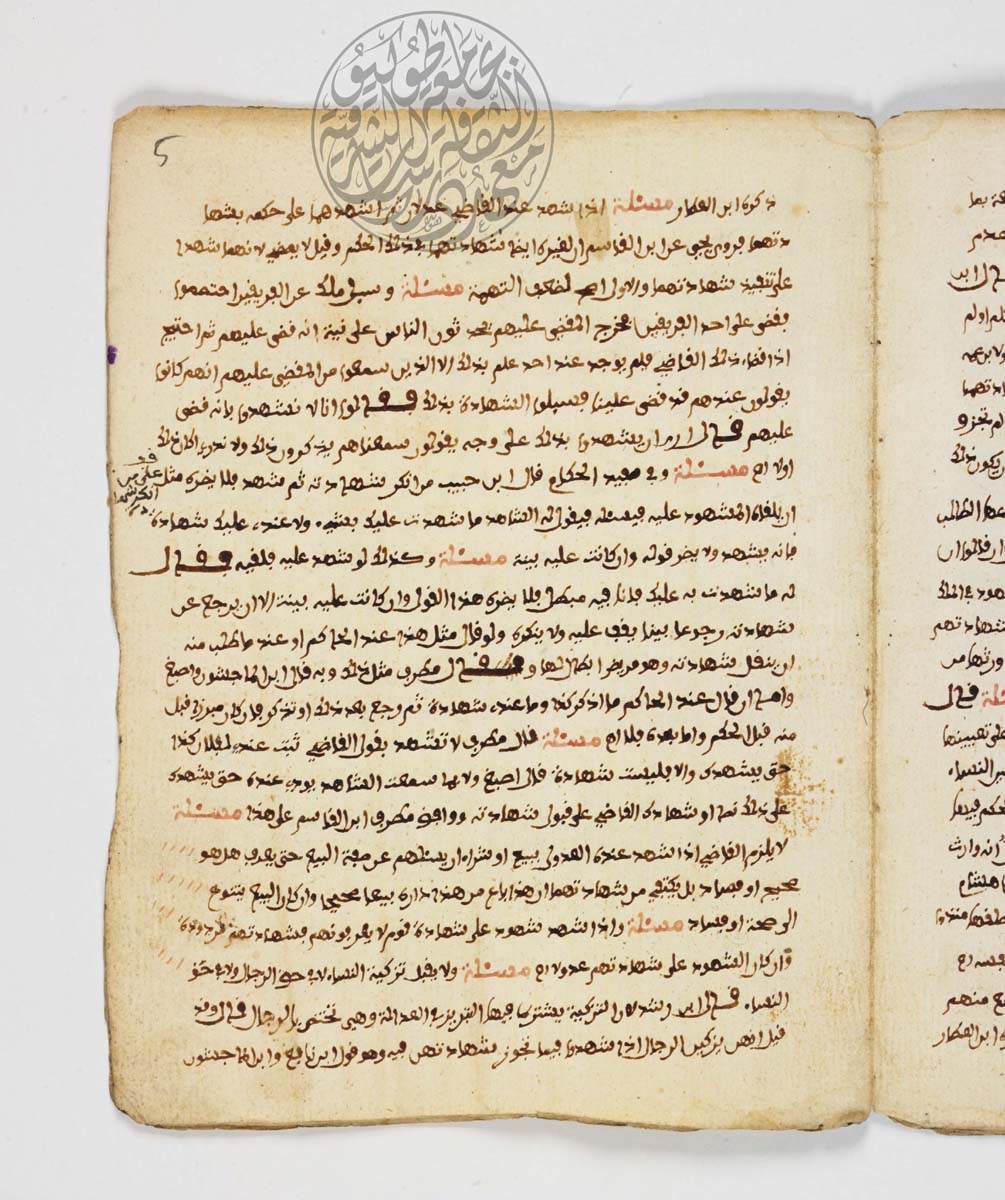 5
ذكره ابن العطار مسئلة اذا شهد عند القاضي عدلان ثم اشهدهما على حكمه بشها
دتهما فروى يحيى عن ابن القاسم ان لغيره ايضا شهادتهما في ذلك الحكم وقيل لا يمضي لانهما شهدا
على تنفيذ شهادتهما والاول اصح لضعف التهمة مسئلة وسئل مالك عن الفريقين اختصموا
فقضى على احد الفريقين فخرج المقضي عليهم يحدثون الناس على نية انه قضى عليهم ثم احتيج
اذا قضاء ذلك القاضي فلم يوجد عند احد علم بذلك الا الذين سمعوا من المقضي عليهم انهم كانوا
يقولون عندهم قد قضى علينا فسئلوا الشهادة بذلك فقالوا انا لا نشهد بانه قضى
عليهم قال ارى ان يشهدوا بذلك على وجه يقولون سمعناهم يذكرون ذلك ولا ندري اكان ذلك
اولا اهـ مسئلة وفي مفيد الحكام قال ابن حبيب من انكر شهادته ثم شهد فلا يضره مثل
ان يلقاه المشهود عليه فيسئله فيقول له الشاهد ما شهدت عليك بشيء ولا عندي عليك شهادة
فانه يشهد ولا يضر قوله وان كانت عليه بينة مسئلة وكذلك لو شهد عليه فلقيه وقال
له ما شهدت به عليك فانا فيه مبطل فلا يضره هذا القول وان كانت عليه بينة الا ان يرجع عن
شهادته رجوعا بينا يقف عليه ولا ينكره ولو قال مثل هذا عند الحاكم او عند ما طلب منه
ان ينقل شهادته وهو مريض ابطالها وقال مطرف مثل ذلك وبه قال ابن الماجشون واصبغ
واما ان قال عند الحاكم ما اذكر كذا وما عندي شهادة ثم رجع بعد ذلك او تذكر فان كان مبرزا قبل
منه قبل الحكم واما بعده فلا اهـ مسئلة قال مطرف لا تشهد بقول القاضي ثبت عندي لفلان كذا
حتى يشهدك والا فليست شهادة قال اصبغ ولا بما سمعت الشاهد يودي عنده حتى يشهدك
على ذلك نصا او شهادة القاضي على قبول شهادته ووافق مطرف ابن القاسم على هذا مسئلة
لا يلزم القاضي اذا شهد عنده العدول ببيع او شراء ان يسئلهم عن صفة البيع حتى يعرف هل هو
صحيح او فساد بل يكتفي من شهادتهما ان هذا باع من هذا داره بيعا صحيحا وان كان البيع يتنوع
الى صحة او فساد مسئلة واذا شهد شهود على شهادة قوم لا يعرفونهم فشهادتهم مردودة
وان كان الشهود على شهادتهم عدولا اهـ مسئلة ولا يقبل تزكية النساء لا في حق الرجال ولا في حق
النساء قال ابن رشد لان التزكية يشترط فيها التبريز في العدالة وهي تختص بالرجال قال وقد
قيل انهن يزكين الرجال اذا شهدوا فيما تجوز شهادتهن فيه وهو قول ابن نافع وابن الماجشون